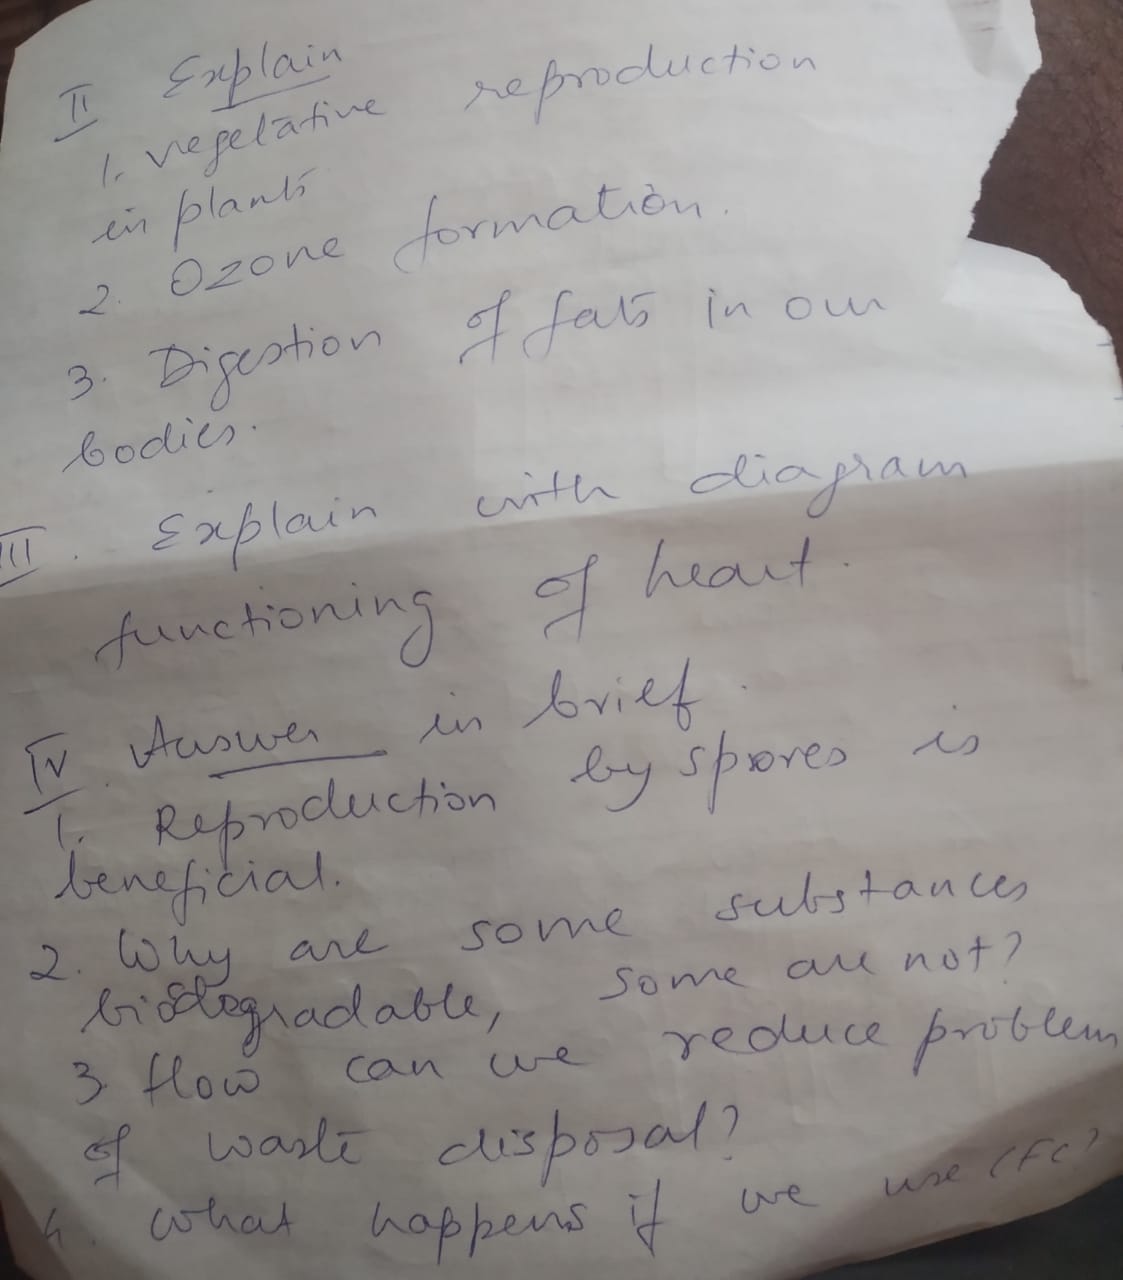 II Explain
1. vegetative reproduction
in plants
2. Ozone formation.
3. Digestion of fats in our
bodies.
III. Explain with diagram
functioning of heart.
IV. Answer in brief.
1. Reproduction by spores is
beneficial.
2. Why are some substances
biodegradable, some are not?
3 How can we reduce problem
of waste disposal?
4. What happens if we use CFC?